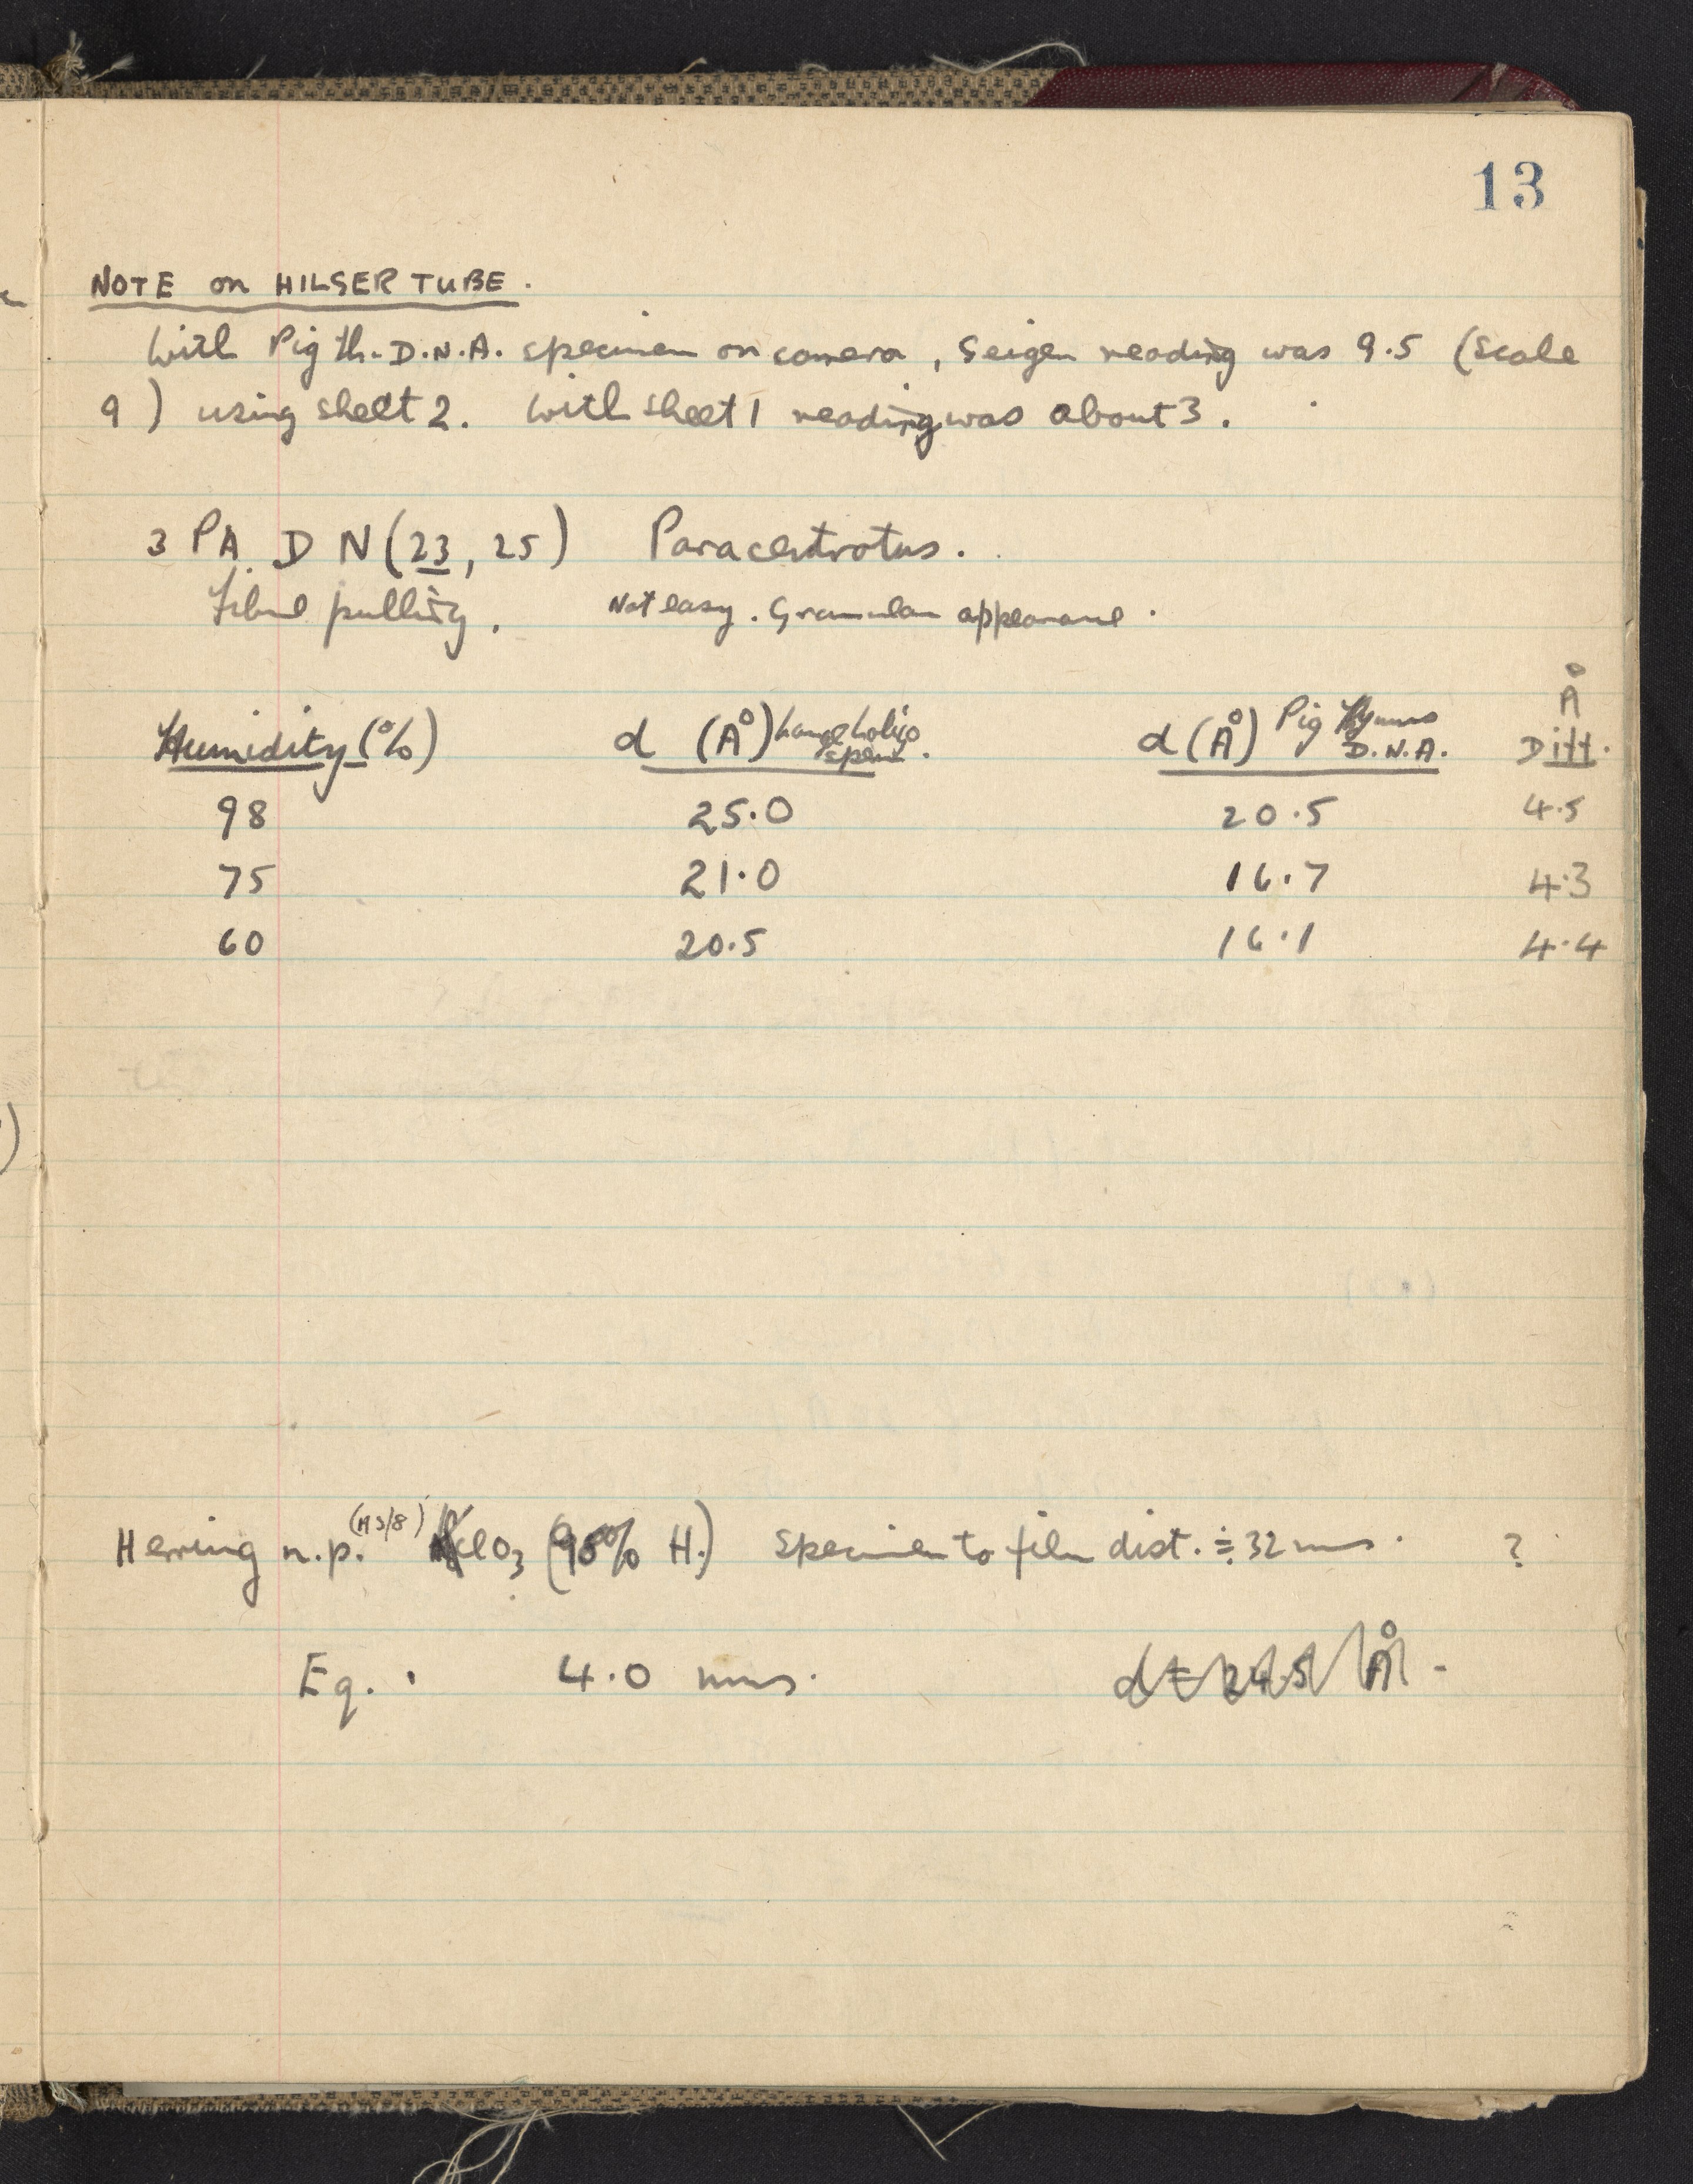 13
NOTE on HILGER TUBE.
With Pig th. D.N.A. specimen on camera, Geiger reading was 9.5 (Scale
9) using shelt 2. With sheet 1 reading was about 3.
3 PA. D N (23, 25) Paracentrotus.
Fibre pulling. Not easy. Granular appearance.
Humidity (%) d (Å) sperm. d (Å) Pig Thymus D.N.A. Å Diff.
98 25.0 20.5 4.5
75 21.0 16.7 4.3
60 20.5 16.1 4.4
Herring n.p. ClO3 (98% H.) Specimen to film dist. ≑ 32 mms. ?
Eq. 4.0 mms. d = 24.5 Å